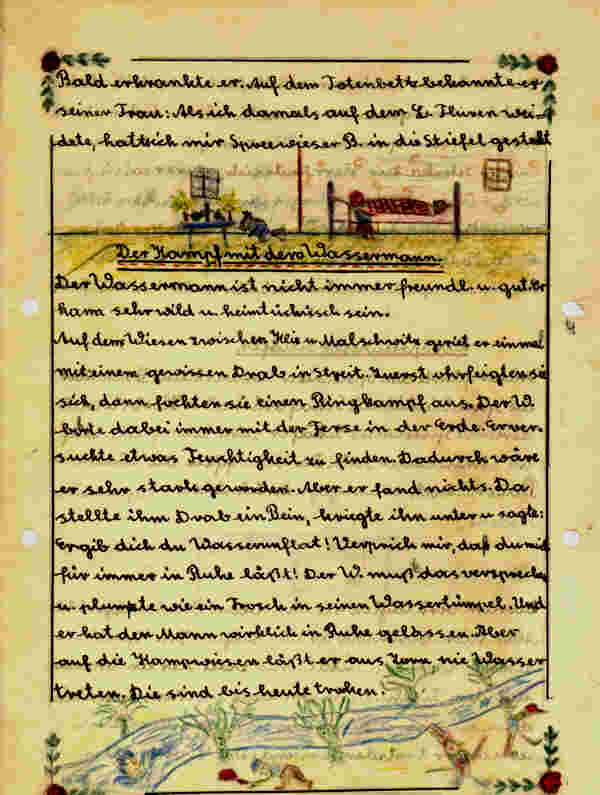 Bald erkrankte er. Auf dem Totenbett bekannte er
seiner Frau: Als ich damals auf dem L. Fluren wei-
dete, hat sich mir Spreewieser B. in die Stiefel gestellt
Der Kampf mit dem Wassermann.
Der Wassermann ist nicht immer freundl. u. gut. Er
kann sehr wild u. heimtückisch sein.
Auf dem Wiesen zwischen Klix u. Malschwitz geriet er einmal
mit einem gewissen Drab in Streit. Zuerst ohrfeigten sie
sich, dann fochten sie einen Ringkampf aus. Der W.
bohrte dabei immer mit der Ferse in der Erde. Er ver-
suchte etwas Feuchtigkeit zu finden. Dadurch wäre
er sehr stark geworden. Aber er fand nichts. Da
stellte ihm Drab ein Bein, kriegte ihn unter u. sagte:
Ergib dich du Wasserunflat! Versprich mir, daß du mich
für immer in Ruhe läßt! Der W. muß das versprechen
u. plumpste wie ein Frosch in seinen Wassertümpel. Und
er hat den Mann wirklich in Ruhe gelassen. Aber
auf die Kampwiesen läßt er aus Zorn nie Wasser
treten. Die sind bis heute trocken.